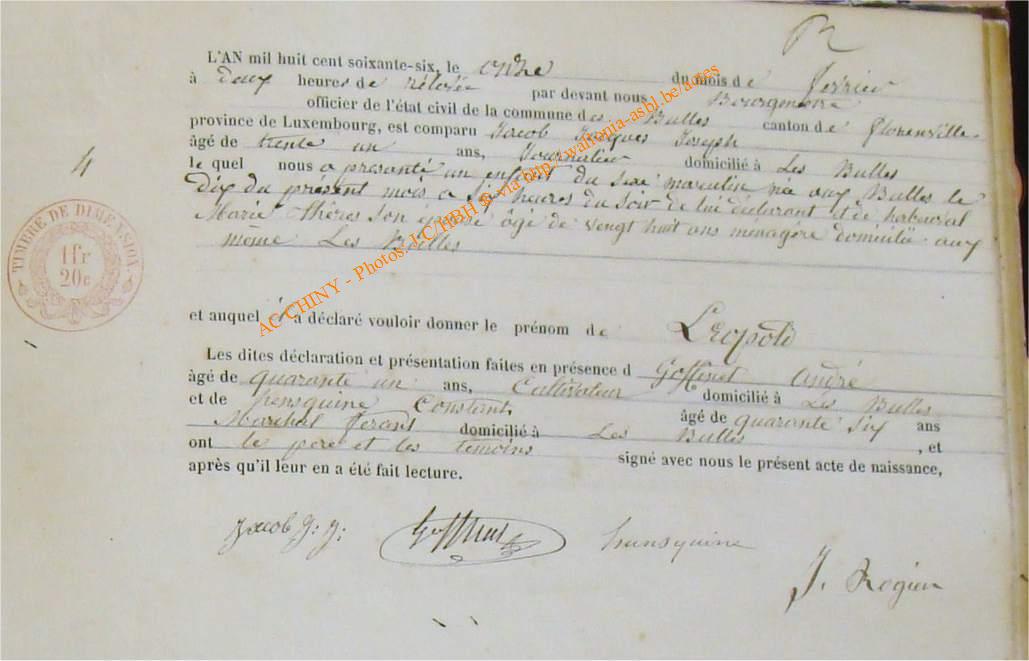 L'AN mil huit cent soixante-six, le onze du mois de fevrier
à deux heures de rélevée par devant nous Bourgmestre
officier de l'état civil de la commune des Bulles canton de Florenville
province de Luxembourg, est comparu Jacob Jacques Joseph
âgé de trente un ans, Journalier domicilié à Les Bulles
le quel nous a presanté un enfant du sexe masculin née aux Bulles le
Dix du présent mois a six heures du soir de lui déclarant et de habaural
Marie Thères son épouse âgé de vengt huit ans menagère domicilii aux
même Les Bulles
4
TIMBRE DE DIMENSION.
1fr
20c
et auquel il a déclaré vouloir donner le prénom de Léopold
Les dites déclaration et présentation faites en présence d Goffinet André
âgé de quarante un ans, Cultivateur domicilié à Les Bulles
et de hensquine Constant âgé de quarante six ans
Maréchal ferant domicilié à Les Bulles , et
ont le pere et les temoins signé avec nous le présent acte de naissance,
après qu'il leur en a été fait lecture.
Jacob J: J: Goffinet hunsquine
J. Rogier
AC CHINY - Photos: J.C/HBH & via http://wallonia-asbl.be/actes